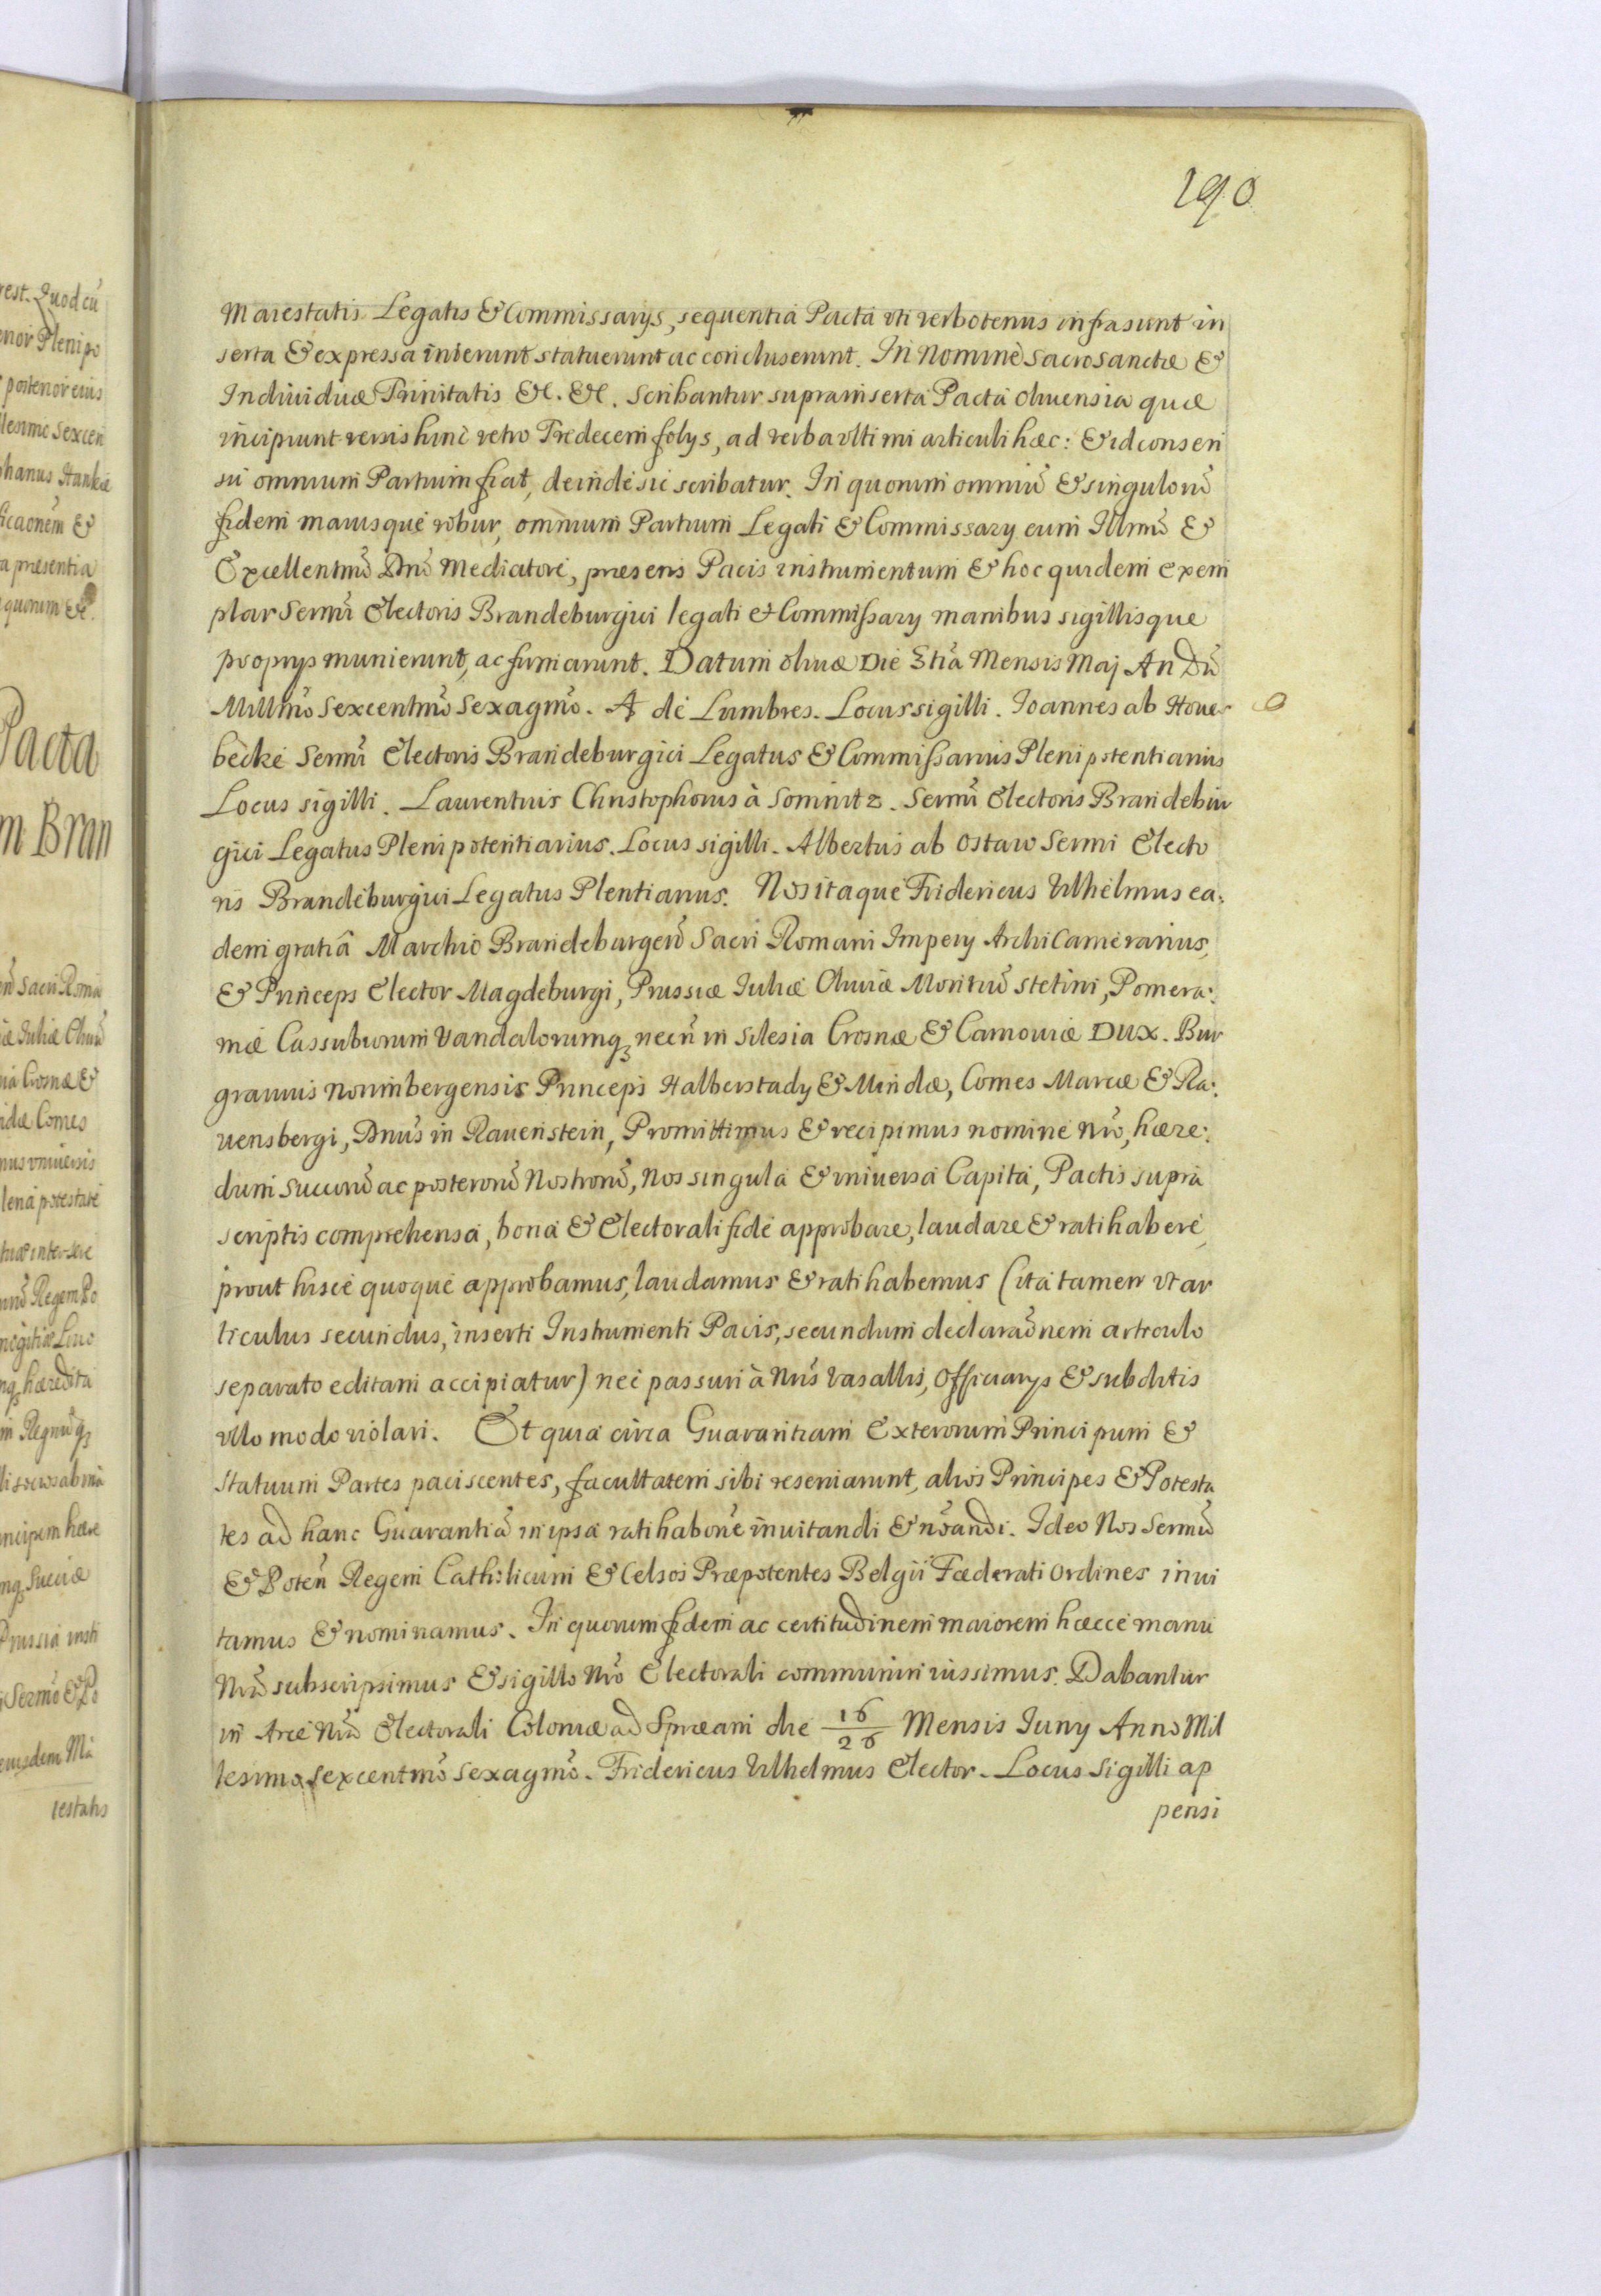 190
Maiestatis Legatis & Commissarys, sequentia Pacta vti verbotenus infra sunt in
serta & expressa inierunt statuerunt ac concluserunt. In Nomine Sacrosanctæ &
Individuæ Trinitatis &c. &c. Scribantur suprainserta Pacta Oliuensia quæ
incipiunt versis hinc retro Tredecem folys, ad verba vltimi articuli hæc: & id consen
su omnium Partium fiat, deinde sic scribatur. In quorum omniũ & singulorũ
fidem maiusque robur, omnium Partium Legati & Commissary cum Illmõ &
Excellentmõ Dnõ Mediatore, præsens Pacis instrumentum & hoc quidem exem
plar Sermi Electoris Brandeburgici legati & Commissary manibus sigillisque
proprys munierunt, ac firmarunt. Datum Oliuæ Die 3tia Mensis Maj An Dñi
Millmõ Sexcentmõ Sexagmõ. A de Lumbres. Locus sigilli. Ioannes ab Houer
becke Sermi Electoris Brandeburgici Legatus & Commissarius Plenipotentiarius
Locus sigilli. Laurentius Christophorus à Somnitz. Sermi Electoris Brandebur
gici Legatus Plenipotentiarius. Locus sigilli. Albertus ab Ostaw Sermi Electo
ris Brandeburgici Legatus Plentiarius. Nos itaque Fridericus Vilhelmus ea:
dem gratiâ Marchio Brandeburgen̄ Sacri Romani Impery Archi Camerarius,
& Princeps Elector Magdeburgi, Prussiæ Iuliæ Cliuiæ Montiũ Stetini, Pomera:
niæ Cassuborum Vandalorumq3 necn̄ in Silesia Crosnæ & Carnouiæ Dux. Bur
grauius Norimbergensis Princeps Halberstady & Mindæ, Comes Marcæ & Ra:
uensbergi, Dnus in Rauenstein, Promittimus & recipimus nomine Nrõ, hære:
dum Succorũ ac posterorũ Nostrorũ, Nos singula & vniuersa Capita, Pactis supra
scriptis comprehensa, bona & Electorali fide approbare, laudare & ratihabere,
prout hisce quoque approbamus, laudamus & ratihabemus (ita tamen vt ar
ticulus secundus, inserti Instrumenti Pacis, secundum declaraõnem articulo
separato editam accipiatur) nec passuri à Nris Vasallis, Officiarys & subditis
vllo modo violari. Et quia circa Guarantiam Exterorum Principum &
Statuum Partes paciscentes, facultatem sibi reseruarunt, alios Principes & Potesta
tes ad hanc Guarantiã in ipsa ratihabone inuitandi & noandi. Ideo Nos Sermũ
& Poten̄ Regem Catholicum & Celsos Præpotentes Belgii Fæderati Ordines inui
tamus & nominamus. In quorum fidem ac certitudinem maiorem hæcce manu
Nrã subscripsimus & sigillo Nrõ Electorali communiri iussimus. Dabantur
in Arce Nrã Electorali Coloniæ ad Spræam die 16/26 Mensis Iuny Anno Mil
lesimo sexcentmõ Sexagmõ. Fridericus Vilhelmus Elector. Locus Sigilli ap
pensi
rest. Quod cũ
enor Plenipo
posterior eius
lesimo Sexcen
phanus Hankie
ficaonem &
a præsentia
quorum &c.
Pacta
m Bran
Sacri Roma
iæ Iuliæ Cliuiæ
ia Crosnæ &
idæ Comes
mus vniuersis
lena potestate
tuæ inter sere
Regem Po
mogitiæ Liuo
nq3 hæredita
m Regnũq3
ncipem hære
nq3 Sueciæ
Prussia insti
Sermõ & Po
eiusdem Ma
iestatis